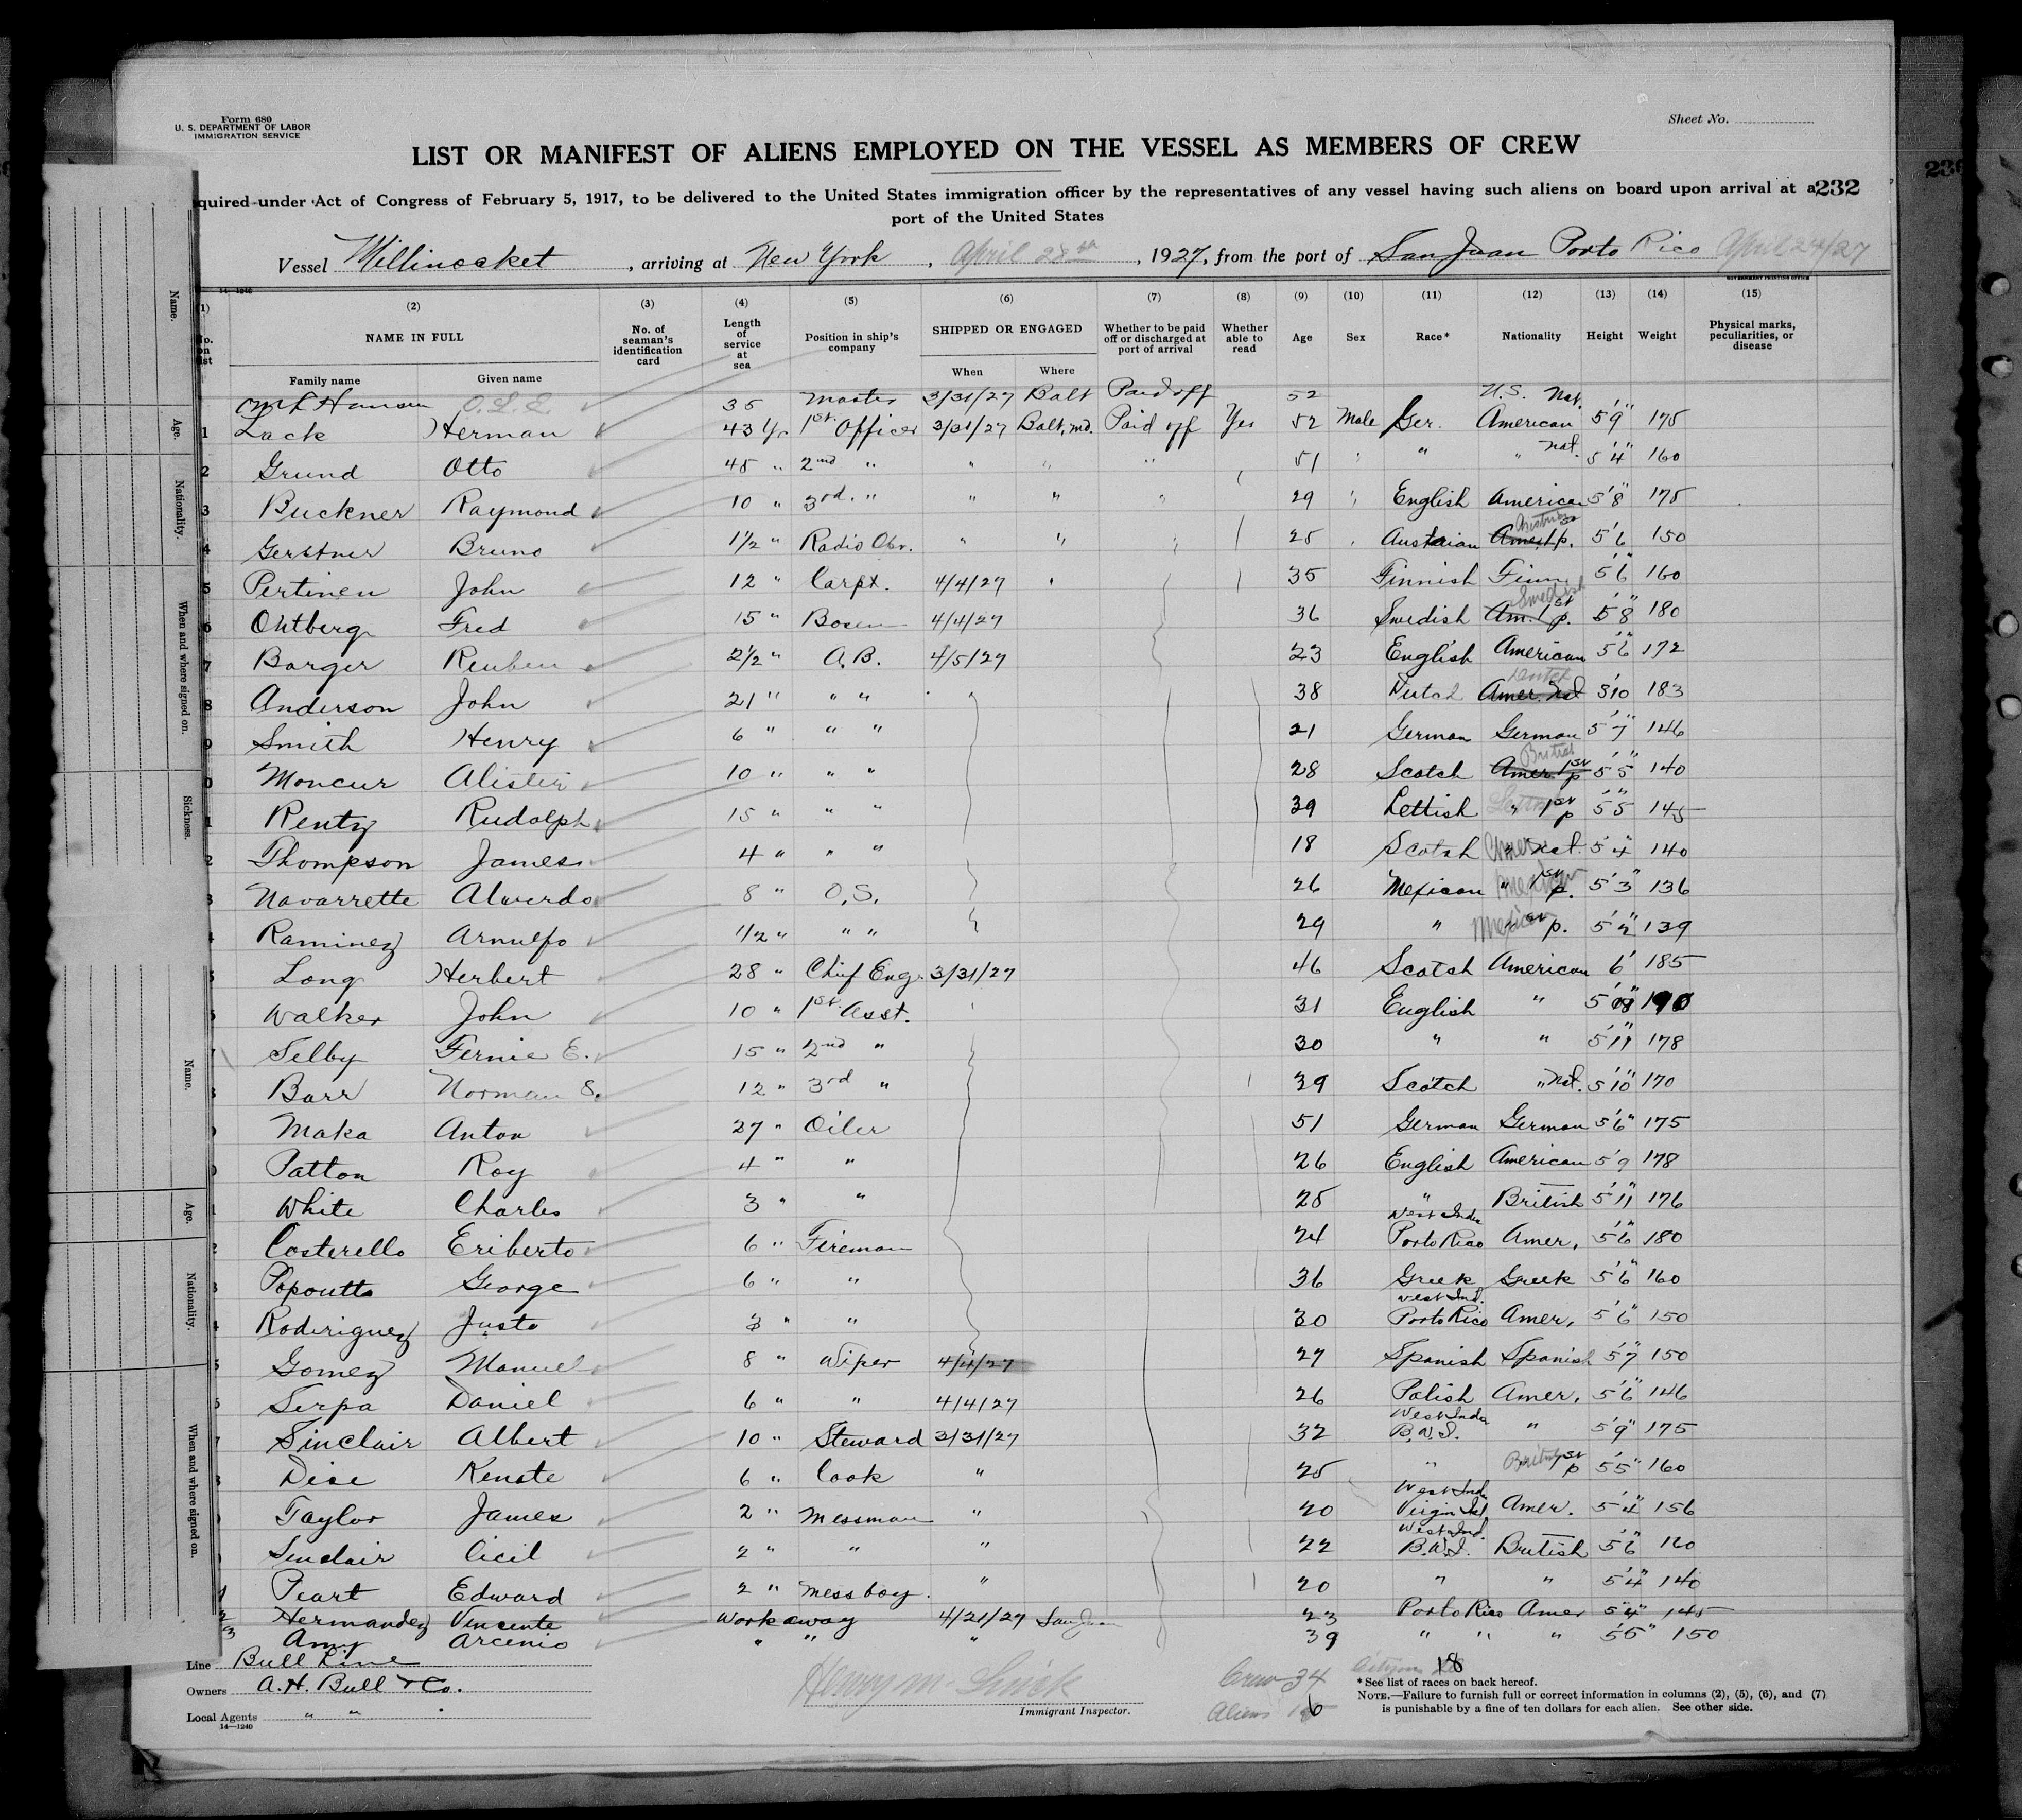 Form 680
U. S. DEPARTMENT OF LABOR
IMMIGRATION SERVICE
Sheet No.
LIST OR MANIFEST OF ALIENS EMPLOYED ON THE VESSEL AS MEMBERS OF CREW
quired under Act of Congress of February 5, 1917, to be delivered to the United States immigration officer by the representatives of any vessel having such aliens on board upon arrival at a 232
port of the United States
Vessel Millinocket, arriving at New York, April 28th, 1927, from the port of San Juan Porto Rico April 24/27
14—1240 GOVERNMENT PRINTING OFFICE
(1) (2) (3) (4) (5) (6) (7) (8) (9) (10) (11) (12) (13) (14) (15)
No. on list NAME IN FULL Family name Given name No. of seaman's identification card Length of service at sea Position in ship's company SHIPPED OR ENGAGED When Where Whether to be paid off or discharged at port of arrival Whether able to read Age Sex Race* Nationality Height Weight Physical marks, peculiarities, or disease
Hansen O.L.E. 35 Master 3/31/27 Balt Paid off 52 U.S. Nat.
1 Lack Herman 43 Yr 1st Officer 3/31/27 Balt, Md. Paid off Yes 52 Male Ger. American 5'9" 175
2 Grund Otto 45 " 2nd " " " " 51 " " " nat. 5'4" 160
3 Buckner Raymond 10 " 3rd. " " " " 29 " English American 5'8" 175
4 Gerstner Bruno 1½ " Radio Opr. " " " 25 " Austrian Austrian Amer 1st p. 5'6 150
5 Pertinen John 12 " Carpt. 4/4/27 " 35 Finnish Finn 5'6" 160
6 Ohtberg Fred 15 " Bosen 4/4/27 36 Swedish Swedish Am. 1st p. 5'8" 180
7 Barger Reuben 2½ " A.B. 4/5/27 23 English American 5'6" 172
8 Anderson John 21 " " " 38 Dutch Dutch Amer. Nat 5'10 183
9 Smith Henry 6 " " " 21 German German 5'7" 146
0 Moncur Alister 10 " " " 28 Scotch British Amer. 1st p 5'5" 140
1 Rentz Rudolph 15 " " " 39 Lettish " 1st p 5'5" 145
2 Thompson James 4 " " " 18 Scotch Amer nat. 5'4" 140
3 Navarrette Alverdo 8 " O.S. 26 Mexican Mexican " 1st p. 5'3" 136
4 Raminez Arnulfo 1½ " " " 29 " Mexican 1st p. 5'2" 139
5 Long Herbert 28 " Chief Eng. 3/31/27 46 Scotch American 6' 185
Walker John 10 " 1st Asst. 31 English " 190
7 Selby Fernie E. 15 " 2nd " 30 " " 5'11" 178
8 Barr Norman S. 12 " 3rd " 39 Scotch " nat. 5'10" 170
Maka Anton 27 " Oiler 51 German German 5'6" 175
Patton Roy 4 " " 26 English American 5'9 178
White Charles 3 " " 25 " British 5'11" 176
2 Costerello Eriberto 6 " Fireman 24 West India Porto Rico Amer. 5'6" 180
3 Popoutts George 6 " " 36 Greek Greek 5'6" 160
4 Roderiguez Justo 3 " " 30 West Ind. Porto Rico Amer. 5'6" 150
5 Gomez Manuel 8 " Wiper 4/4/27 27 Spanish Spanish 5'7" 150
Serpa Daniel 6 " " 4/4/27 26 Polish Amer. 5'6" 146
7 Sinclair Albert 10 " Steward 3/31/27 32 West India B.W.I. " 5'9" 175
Dise Renste 6 " Cook " 25 " British 1st p 5'5" 160
Taylor James 2 " Messman " 20 West India Virgin Isl. Amer. 5'4" 156
Sinclair Cicil 2 " " " 22 West Ind. B.W.I. British 5'6" 160
1 Peart Edward 2 " Messboy. " 20 " " 5'4" 140
2 Hermandez Vincente Workaway 4/21/27 San Juan 23 Porto Rico Amer 5'4" 145
3 Amy Arcenio " " " 39 " " " 5'5" 150
Line Bull Line
Owners A.H. Bull & Co.
Local Agents " "
14—1240
Immigrant Inspector.
Crew 34
Aliens 16
18
*See list of races on back hereof.
NOTE.—Failure to furnish full or correct information in columns (2), (5), (6), and (7)
is punishable by a fine of ten dollars for each alien. See other side.
Name.
Age.
Nationality.
When and where signed on.
Sickness.
Name.
Age.
Nationality.
When and where signed on.